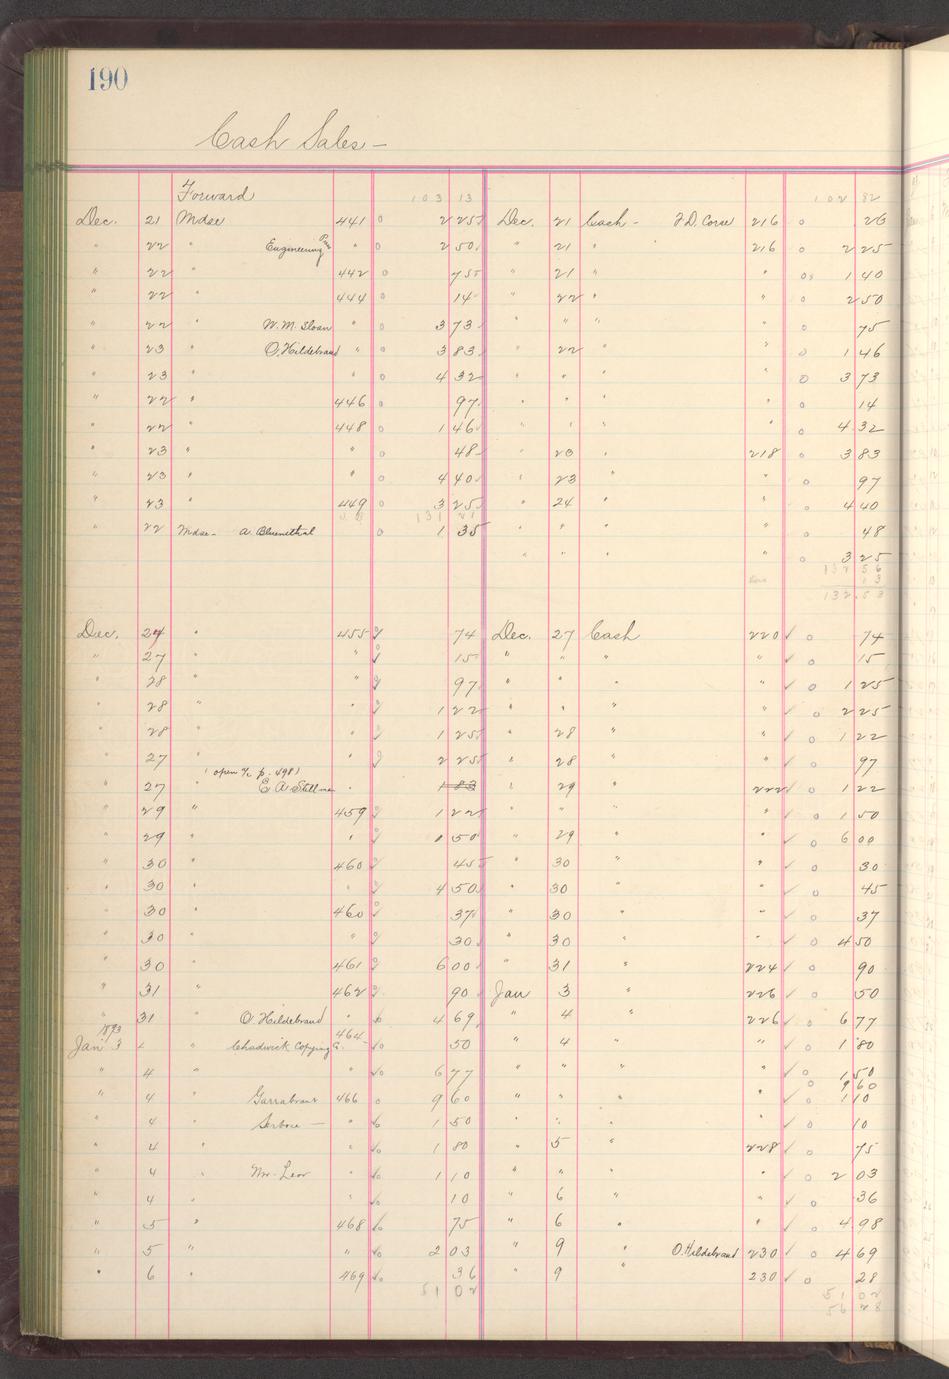 190
Cash Sales —
Forward 103 13 102 82
Dec. 21 Mdse 441 o 2 25 Dec. 21 Cash - J.D. Corse 216 o 26
" 22 " Engineering " o 2 50 " 21 " 216 o 2 25
" 22 " 442 o 75 " 21 " " o 1 40
" 22 " 444 o 14 " 22 " " o 2 50
" 22 " W.M. Sloan " o 3 73 " " " " o 75
" 23 " O. Hildebrand " o 3 83 " 22 " " o 1 46
" 23 " o 4 32 " " " " o 3 73
" 22 " 446 o 97 " " " " o 14
" 22 448 o 1 46 " " " " o 4 32
" 23 " " o 48 " 23 " 218 o 3 83
" 23 " " o 4 40 " 23 " " o 97
" 23 449 o 3 25 " 24 " " o 4 40
131 21
" 22 Mdse - A. Bluementhal o 1 35 " " " " o 48
" " " o 3 25
132 56
13
132.53
Dec. 24 " 455 74 Dec. 27 Cash 220 ✓ o 74
" 27 " " 15 " " " " ✓ o 15
" 28 " 97 " " " " ✓ o 1 25
" 28 " " 1 22 " " " " o 2 25
" 28 " " 1 25 " 28 " " ✓ o 1 22
" 27 " " 2 25 " 28 " " ✓ o 97
(open % p. 498)
" 27 E A Stillman " 1 83 " 29 " 222 ✓ o 1 22
" 29 " 459 1 22 " " " " ✓ o 1 50
" 29 " " 1 50 " 29 " " ✓ o 6 00
" 30 " 460 45 " 30 " " ✓ o 30
" 30 " " 4 50 " 30 " " ✓ o 45
" 30 " 460 37 " 30 " " ✓ o 37
" 30 " " 30 " 30 " " ✓ o 4 50
" 30 " 461 6 00 " 31 " 224 ✓ o 90
" 31 " 462 90 Jan 3 " 226 ✓ o 50
" 31 O. Hildebrand " 4 69 " 4 " 226 ✓ o 6 77
1893
Jan 3 " Chadwick Copying Co. 464 50 " 4 " " ✓ o 1 80
" 4 " " 6 77 " " " " ✓ o 1 50
o 9 60
" 4 " Garrabrant 466 o 9 60 " " " " ✓ o 1 10
" 4 — " 1 50 " " " " ✓ o 10
" 4 " " 1 80 " 5 " 228 ✓ o 75
" 4 " " 1 10 " " " " ✓ o 2 03
" 4 " 10 " 6 " " ✓ o 36
" 5 " 468 75 " 6 " " ✓ o 4 98
" 5 " " 2 03 " 9 " O. Hildebrand 230 ✓ o 4 69
" 6 " 469 36 " 9 " 230 ✓ o 28
51 02 51 02
56 28